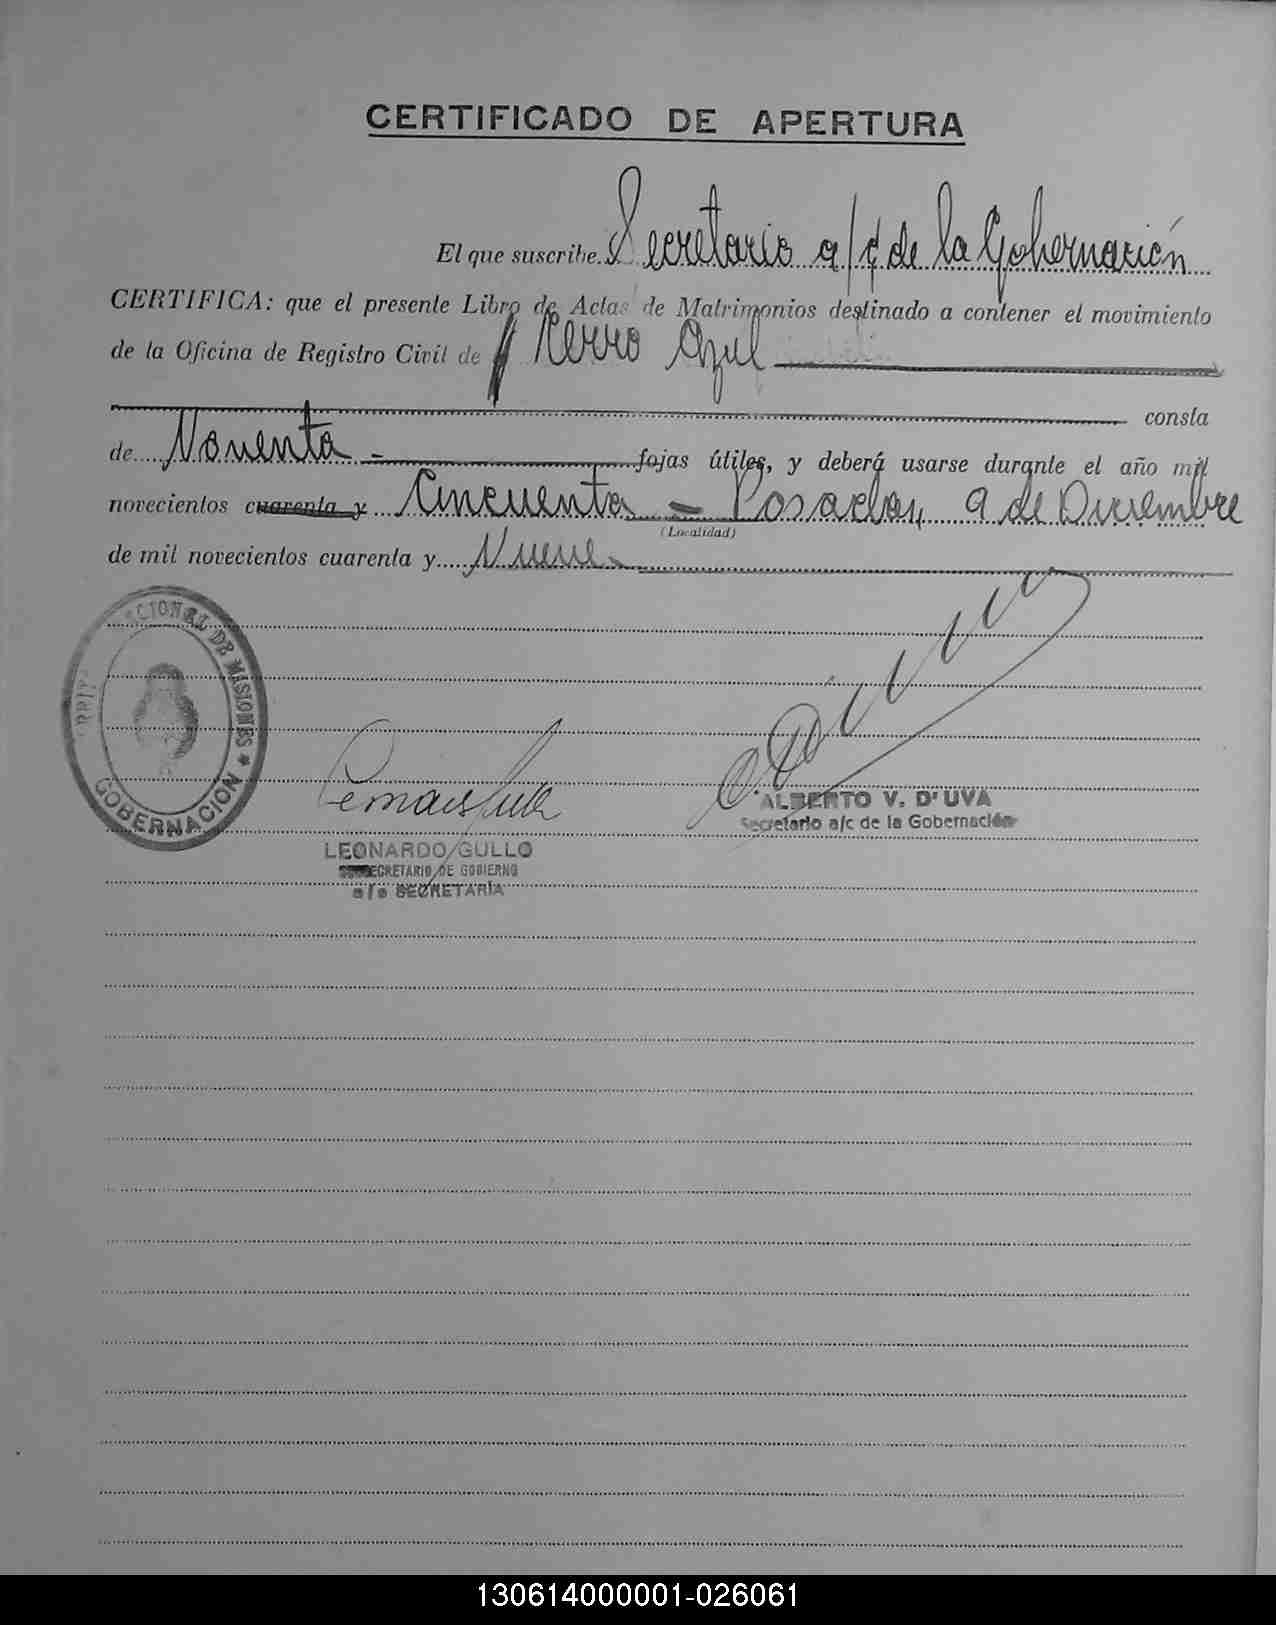 CERTIFICADO DE APERTURA
El que suscribe Secretario a/c de la Gobernación
CERTIFICA: que el presente Libro de Actas de Matrimonios destinado a contener el movimiento
de la Oficina de Registro Civil de Cerro Azul
consta
de Noventa fojas útiles, y deberá usarse durante el año mil
novecientos cuarenta y Cincuenta - Posadas, 9 de Diciembre
(Localidad)
de mil novecientos cuarenta y Nueve
CIONAL DE MISIONES *
GOBERNACIÓN
ALBERTO V. D'UVA
Secretario a/c de la Gobernación
LEONARDO GULLO
SECRETARIO DE GOBIERNO
SECRETARÍA
130614000001-026061